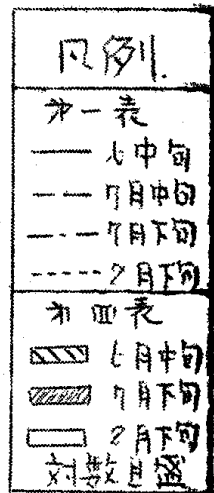 凡例.
才一表
七中旬
7月中旬
7月下旬
7月下旬
才四表
七月中旬
7月下旬
7月下旬
対数目盛